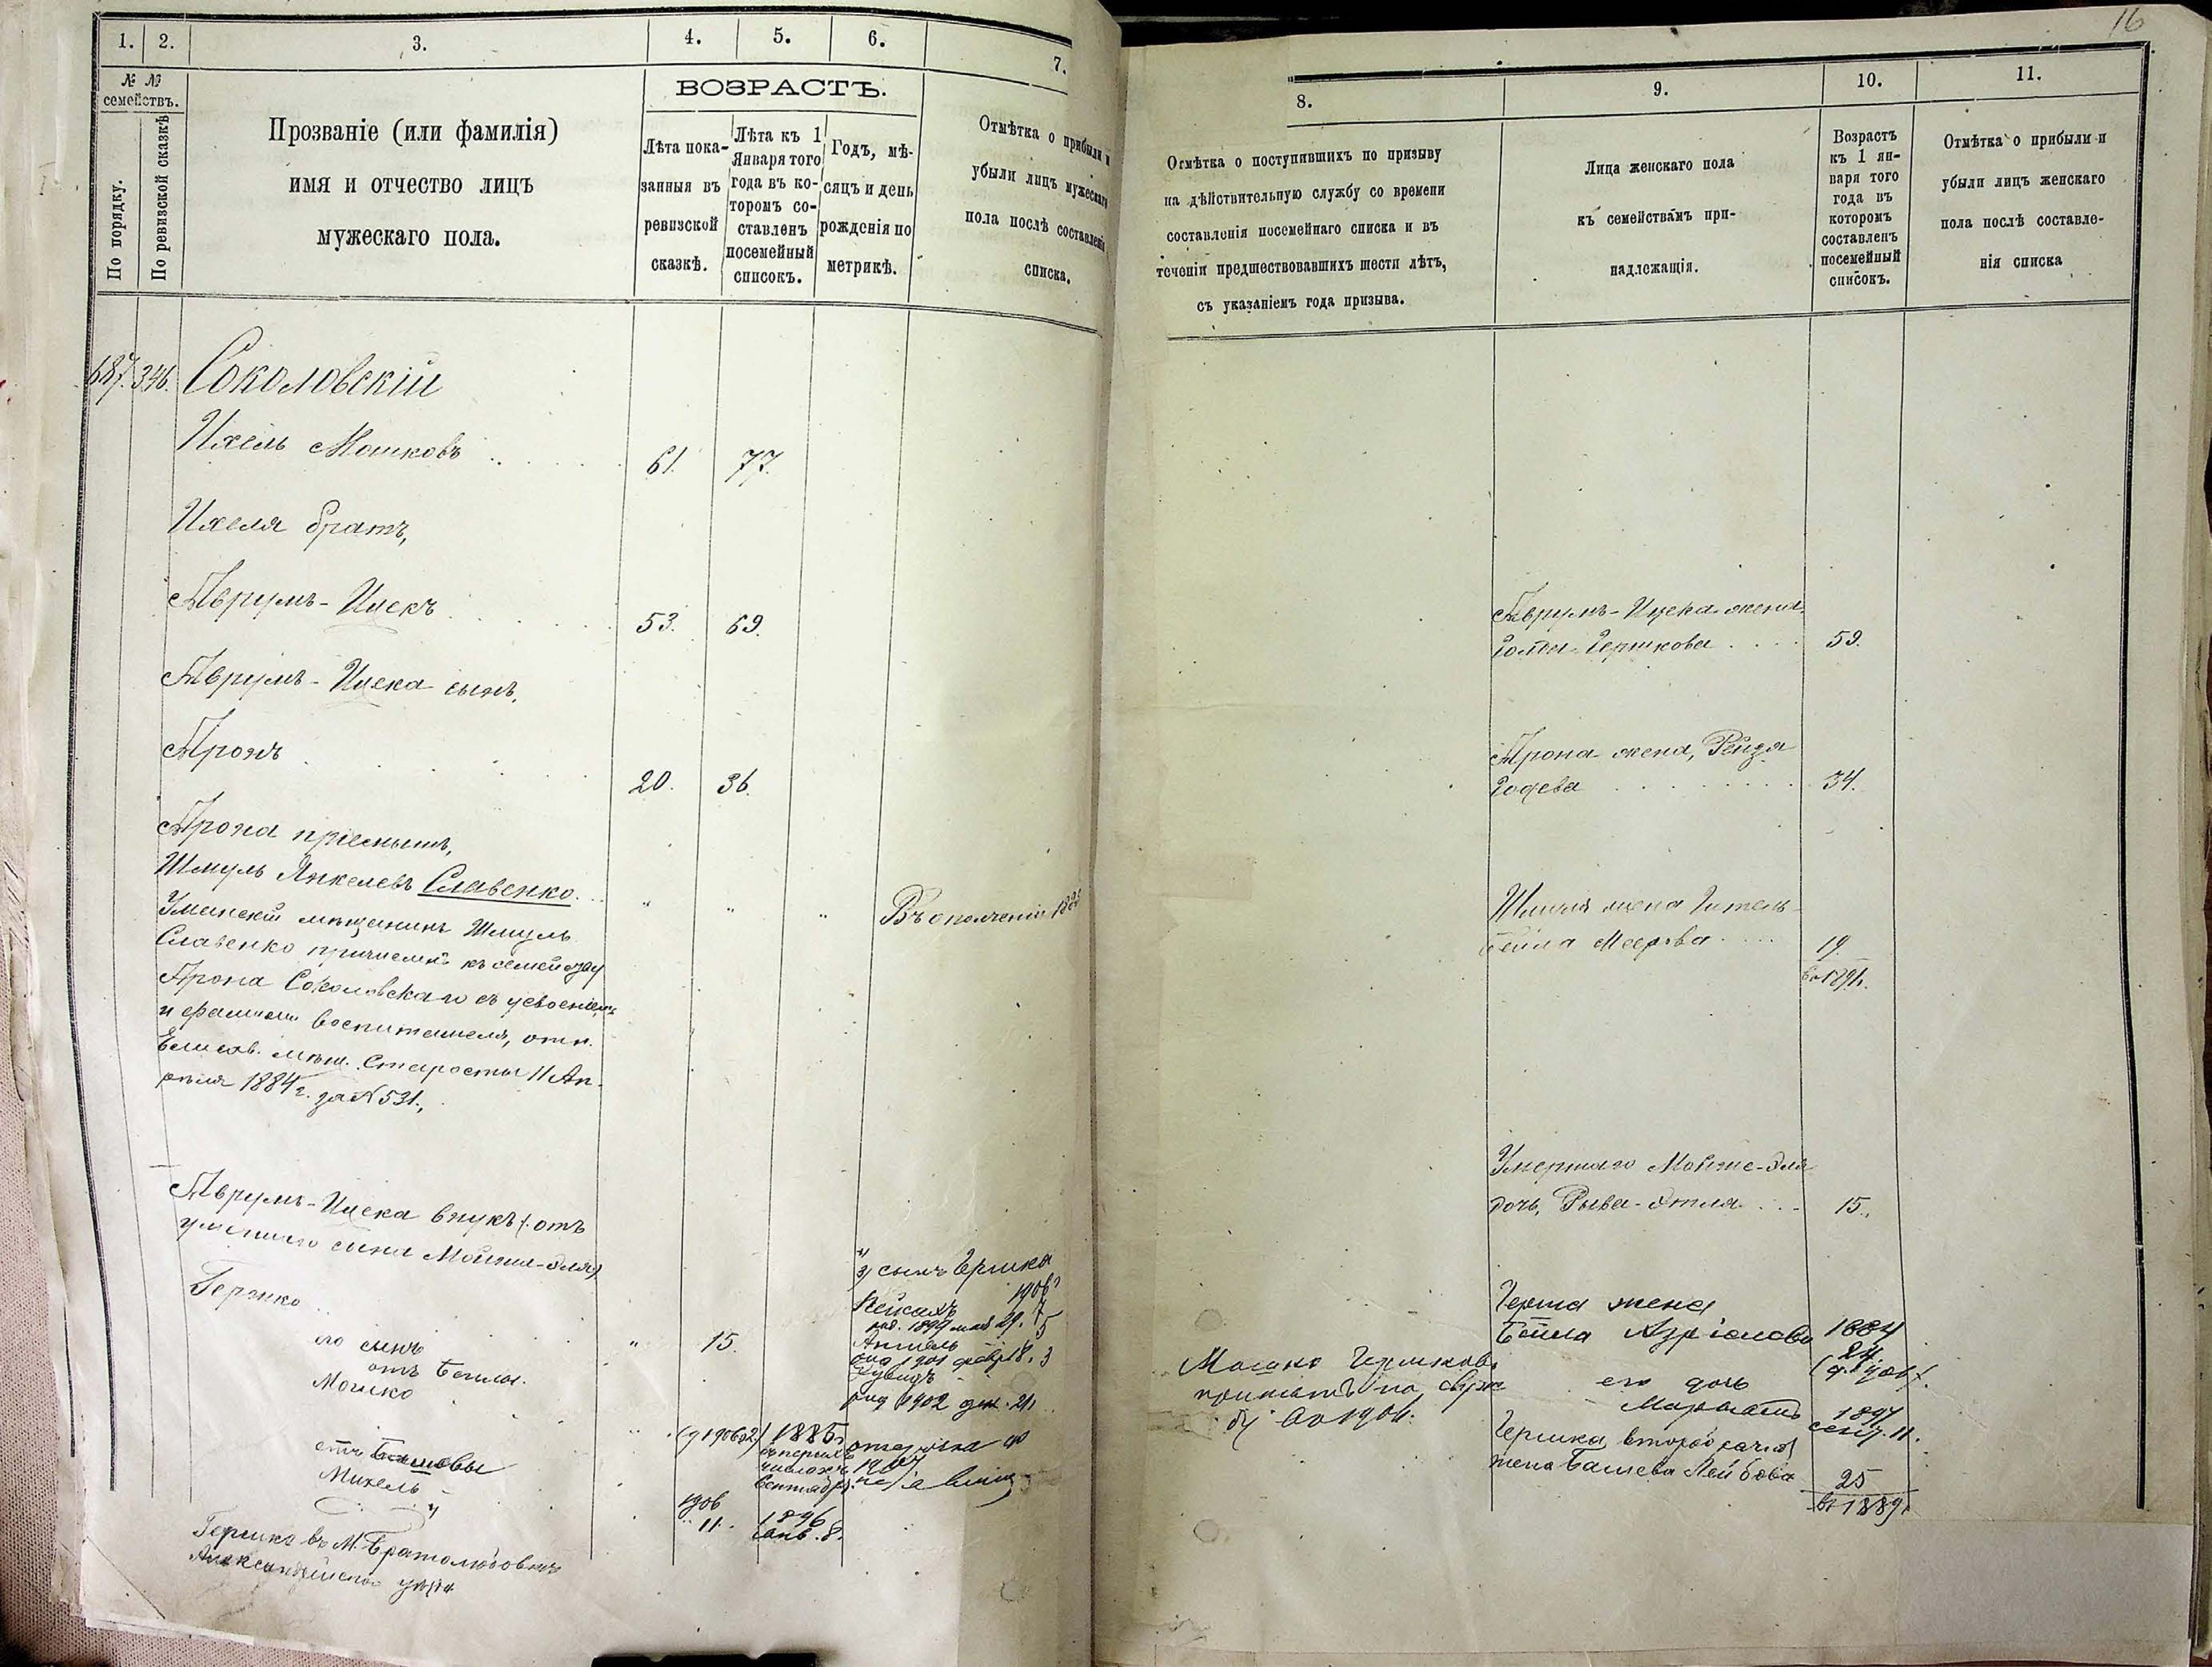 1. 2. 3. 4. 5. 6. 7.
№ №
семействъ.
По порядку.
По ревизской сказкѣ
Прозваніе (или фамилія)
имя и отчество лицъ
мужескаго пола.
ВОЗРАСТЪ.
Лѣта пока-
занныя въ
ревизской
сказкѣ.
Лѣта къ 1
Января того
года въ ко-
торомъ со-
ставленъ
посемейный
списокъ.
Годъ, мѣ-
сяцъ и день
рожденія по
метрикѣ.
Отмѣтка о прибыли и
убыли лицъ мужескаго
пола послѣ составленія
списка.
687. 346. Соколовскій
Ихель Мошковъ 61. 77.
Ихеля братъ,
Аврумъ-Ицекъ 53. 69.
Аврумъ-Ицека сынъ,
Аронъ 20. 36.
Арона пріемышъ,
Шмуль Янкелевъ Славенко. " " " Въ ополченіи
Уманскій мѣщанинъ Шмуль
Славенко причисленъ къ семейству
Арона Соколовскаго съ усвоеніемъ
и фамиліи воспитателя, отн.
Елисав. мѣщ. Старосты 11 Ап-
рѣля 1884 г. за № 531.,
Аврумъ-Ицека внукъ (отъ
умершаго сына Мойше-Эля)
Гершко " 15.
его сынъ
отъ Бейлы.
Мошко 1885
Михель
1906
11. 1896
янв. 8.
Гершко въ М. Братолюбовкѣ
Александрійскаго уѣзда
3) сынъ Гершка
1906
Пейсахъ 7
род. 1899 мая 29. 5
род 1901 февр 18. 3
род 1902 дек. 21.
отсрочка до
1907
16
8. 9. 10. 11.
Отмѣтка о поступившихъ по призыву
на дѣйствительную службу со времени
составленія посемейнаго списка и въ
теченіи предшествовавшихъ шести лѣтъ,
съ указаніемъ года призыва.
Лица женскаго пола
къ семействамъ при-
надлежащія.
Возрастъ
къ 1 ян-
варя того
года въ
которомъ
составленъ
посемейный
списокъ.
Отмѣтка о прибыли и
убыли лицъ женскаго
пола послѣ составле-
нія списка
Аврумъ-Ицека жена
Голда Гершкова 59.
Арона жена, Рейзя
34.
Шмуля жена Гитель-
Бейла Меерова 19.
въ 1891г.
Умершаго Мойше-Эля
дочь, Рыва-Этля 15.
Герша жена
Бейла Азріелова 1884
24
его дочь
1897
сент. 11.
Мошко Гершковъ
принятъ на служ
бу въ 1906г.
Гершка второбрачная
жена Башева Лейбова 25
въ 1889г